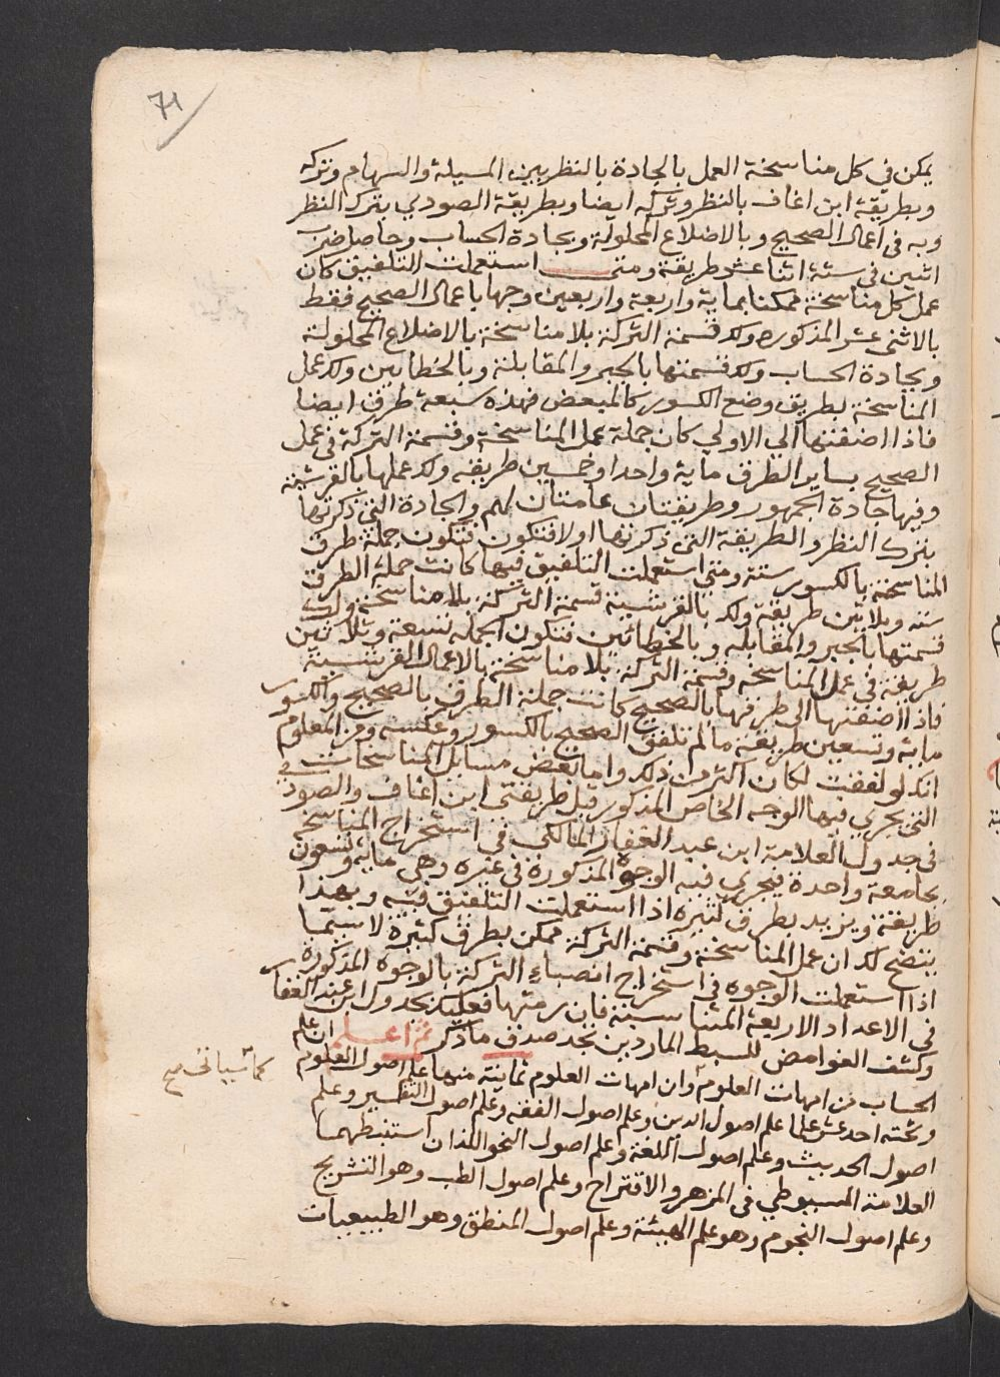 71
يمكن في كل مناسخة العمل بالجادة بالنظر بين المسيلة والسهام وتركه
وبطريقة ابن اغاف بالنظر وتركه ايضا وبطريقة الصودي بترك النظر
وبه في اعمال الصحيح وبالاضلاع المحلولة وبجادة الحساب وحاصل ضرب
اثنين في ستة اثنا عشر طريقة ومتى استعملت التلفيق كان
عمل كل مناسخة ممكنا بماية واربعة واربعين وجها باعمال الصحيح فقط
بالاثنى عشر المذكوره ولك قسمة التركة بلا مناسخة بالاضلاع المحلولة
وبجادة الحساب ولك قسمتها بالجبر والمقابلة وبالخطايين ولك عمل
المناسخة بطريق وضع الكسور كالمبعض فهذه سبعة طرق ايضا
فاذا اضفتها الي الاولي كان جملة عمل المناسخة وقسمة التركة في عمل
الصحيح بساير الطرق ماية واحدا وخمسين طريقه ولك عملها بالقرشية
وفيها جادة الجمهور وطريقتان عامتان لهم والجادة التي ذكرتها
بترك النظر والطريقة التي ذكرتها اولا فتكون جملة طرق
المناسخة بالكسور ستة ومتي استعملت التلفيق فيها كانت جملة الطرق
سته وثلاثين طريقة ولك بالقرشية قسمة التركة بلا مناسخة ولك
قسمتها بالجبر والمقابله وبالخطائين فتكون الجمله تسعة وثلاثين
طريقة في عمل المناسخه وقسمة التركة بلا مناسخة بالاعمال القرشية
فاذا اضفتها الى طرقها بالصحيح كانت جملة الطرق بالصحيح والكسور
ماية وتسعين طريقة مالم تلفق الصحيح بالكسور وعكسه ومن المعلوم
انك لو لفقت لكان اكثر من ذلك واما بعض مسايل المناسخات
التي يجري فيها الوجه الخاص المذكور قبل طريقتي ابن اغاف والصودي
في جدول العلامة ابن عبد الغفار المالكي في استخراج المناسخة
بجامعة واحدة فيجري فيه الوجوه المذكورة في غيره وهي ماية وتسعون
طريقة ويزيد بطرق كثيره اذا استعملت التلفيق فيه وبهذا
يتضح لك ان عمل المناسخة وقسمة التركة ممكن بطرق كثيرة لا سيما
اذا استعملت الوجوه في استخراج انصباء التركة بالوجوه المذكورة
في الاعداد الاربعة المتناسبة فان رمتها فعليك بجدول ابن عبد الغفار
وكشف الغوامض للسبط المارديني تجد صدق ما ذكر ثم اعلم ان علم
الحساب من امهات العلوم وان امهات العلوم ثمانية منها علم اصول العلوم
كما سياتي صح
وتحته احد عشر علما علم اصول الدين وعلم اصول الفقه وعلم اصول التفسير وعلم
اصول الحديث وعلم اصول اللغة وعلم اصول النحو اللذان استنبطهما
العلامة السيوطي في المزهر والاقتراح وعلم اصول الطب وهو التشريح
وعلم اصول النجوم وهو علم الهيئة وعلم اصول المنطق وهو الطبيعيات